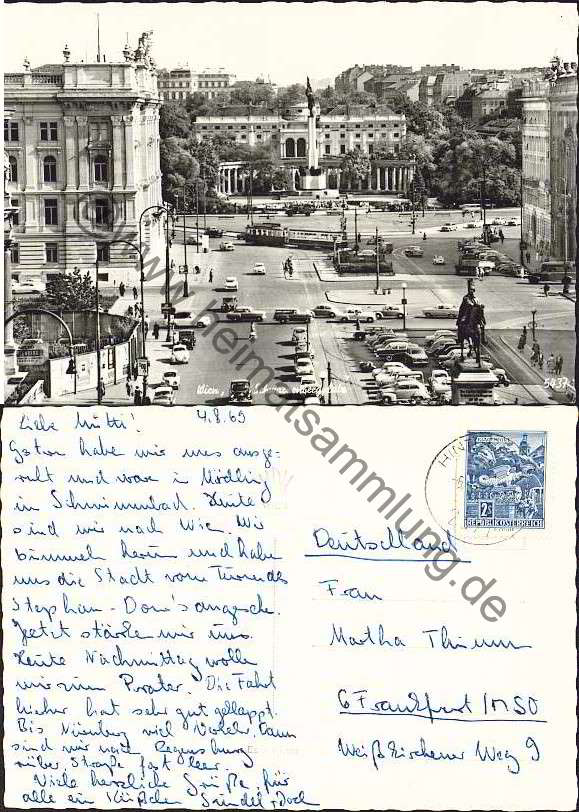 Wien, Schwarzenbergplatz
5437
www.heimatsammlung.de
Liebe Mutti! 4.8.69
Gestern habe wir uns ausge-
ruht und ware in Mödling
in Schwimmbad. Heute
sind wir nach Wien. Wir
bummeln herum und habe
uns die Stadt vom Turm des
Stephan-Dom's angesehe.
Jetzt stärke wir uns.
Heute Nachmittag wolle
wir zum Prater. Die Fahrt
hieher hat sehr gut geklappt.
Bis Nürnberg viel Verkehr, dann
sind wir nach Regensburg
rüber, Straße fast leer.
Viele herzliche Grüße, für
alle ein Küßchen
HIN
2S
REPUBLIK ÖSTERREICH
Deutschland
Frau
Martha Thimm
6 Frankfurt/M SO
Weißkirchener Weg 9